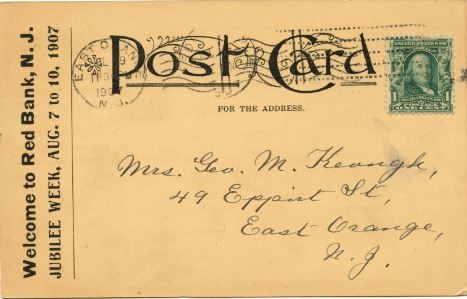 Welcome to Red Bank, N. J.
JUBILEE WEEK, AUG. 7 to 10, 1907
Post Card
FOR THE ADDRESS.
EAST ORAN
N. J.
UNITED STATES OF AMERICA
1 1
Mrs. Geo. M. Keough,
49 Eppirt St,
East Orange,
N. J.